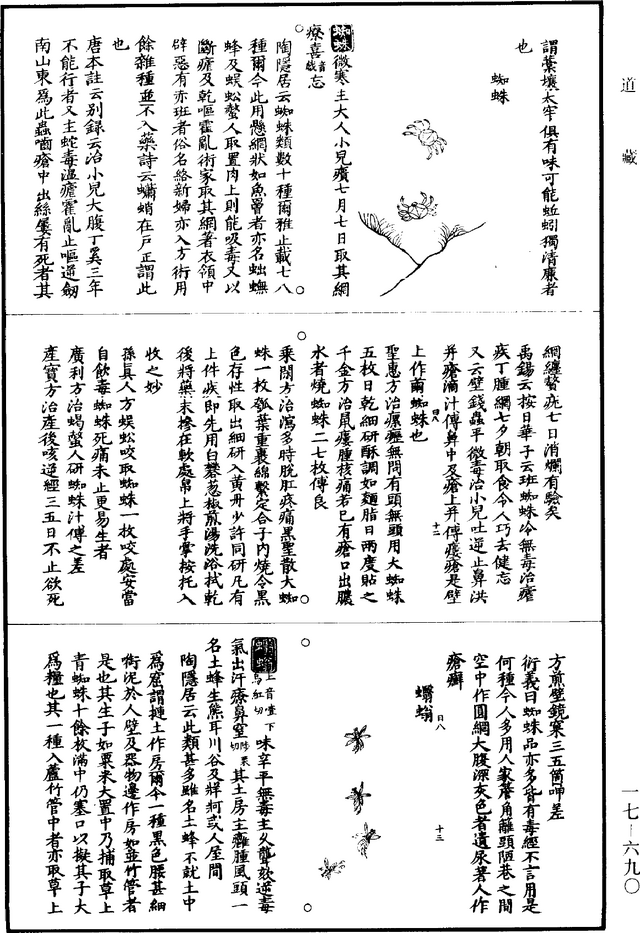 道藏
謂藁壤太牢俱有味可能蚯蚓獨清廉者
也
蜘蛛
蜘蛛微寒主大人小兒㿗七月七日取其網
療喜忘
陶隱居云蜘蛛類數十種爾雅止載七八
種爾今此用懸網狀如魚罾者亦名蚍蟱
蜂及蜈蚣螫人取置肉上則能吸毒又以
斷瘧及乾嘔霍亂術家取其網著衣領中
辟惡有赤班者俗名絡新婦亦入方術用
餘雜種並不入藥詩云蠨蛸在戶正謂此
也
唐本註云别錄云治小兒大腹丁奚三年
不能行者又主蛇毒溫瘧霍亂止嘔逆劒
南山東爲此蟲嚙瘡中出絲屢有死者其
網纏贅疣七日消爛有驗矣
禹錫云按日華子云班蜘蛛冷無毒治瘧
疾丁腫網七夕朝取食令人巧去健忘
又云壁錢蟲平微毒治小兒吐逆止鼻洪
幷瘡滴汁傅鼻中及瘡上幷傅瘻瘡是壁
上作繭蜘蛛也
聖惠方治瘰癧無問有頭無頭用大蜘蛛
五枚日乾細研酥調如麵脂日兩度貼之
千金方治鼠瘻腫核痛若已有瘡口出膿
水者燒蜘蛛二七枚傅良
乘閑方治瀉多時脫肛疼痛黑聖散大蜘
蛛一枚瓠葉重裹綿繫定合子内燒令黑
色存性取出細研入黃丹少許同研凡有
上件疾即先用白礬葱椒煎湯洗浴拭乾
後將藥末摻在軟處帛上將手掌按托入
收之妙
孫真人方蜈蚣咬取蜘蛛一枚咬處安當
自飲毒蜘蛛死痛未止更易生者
廣利方治蝎螫人研蜘蛛汁傅之差
產寶方治產後咳逆經三五日不止欲死
方煎壁鏡窠三五箇呷差
衍義曰蜘蛛品亦多皆有毒經不言用是
何種今人多用人家簷角籬頭陋巷之間
空中作圓網大腹深灰色者遺尿著人作
瘡癬
蠮螉
蠮螉味辛平無毒主久聾欬逆毒
氣出汗療鼻窒其土房主癰腫風頭一
名土蜂生熊耳川谷及牂牁或人屋間
陶隱居云此類甚多雖名土蜂不就土中
爲窟謂摙土作房爾今一種黑色腰甚細
銜泥於人壁及器物邊作房如並竹管者
是也其生子如粟米大置中乃捕取草上
青蜘蛛十餘枚滿中仍塞口以擬其子大
爲糧也其一種入蘆竹管中者亦取草上
一七—六九〇